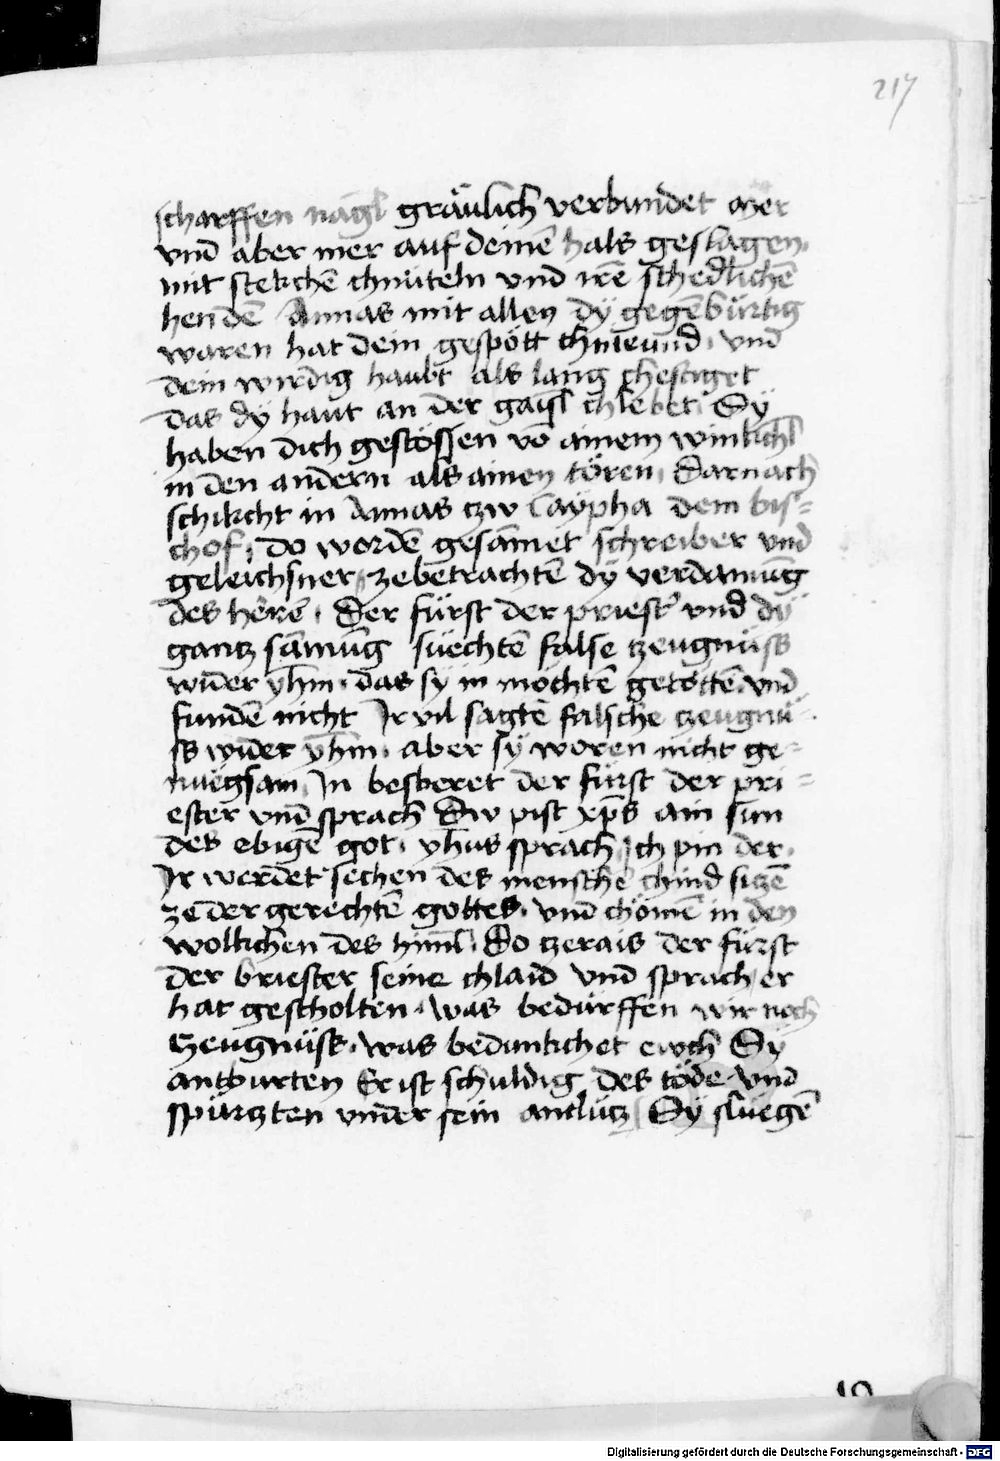 217
scharffen nägl gräulich verbundet
vnd aber mer auf deinē hals geslagen.
mit stekchē chnüteln vnd irē schedlichē
hendē Annas mit allen dy gegēbürtig
waren hat dein gespött vnd
dein wirdig haubt als lang chestiget
das dy haut an der gaisl chlebet Sy
haben dich gestössen vō ainem winkchl
in den andern als ainen tören. Darnach
schikcht in Annas tzw Caypha dem bis=
chof. do wordē gesāmet schreiber vnd
geleichsner zebetrachtē dy verdamūg
des herē. Der fürst der priest vnd dÿ
gantz sāmūg suechtē false tzeugnüss
wider yhm. das sy in möchtē getöttē. vnd
fundē nicht Ir vil sagtē falsche tzeugnü=
ss wider yhm. aber sy woren nicht ge=
nuegsam. In besberet der fürst der pri=
ester vnd sprach Dw pist xp̄s ain sun
des ebigē got. yhus sprach Ich pin der.
Ir werdet sechen des menschē chind sitzē
ze der gerechtē gottes. vnd chömē in den
wolkchen des himl. Do tzerais der fürst
der briester seine chlaid vnd sprach er
hat gescholten. was bedürffen wir noch
Zeugnüss. was bedunkchet ewch Sy
antburten Er ist schuldig des töde vnd
spürtzten vnder sein antlütz Sÿ sluegē
19
Digitalisierung gefördert durch die Deutsche Forschungsgemeinschaft - DFG